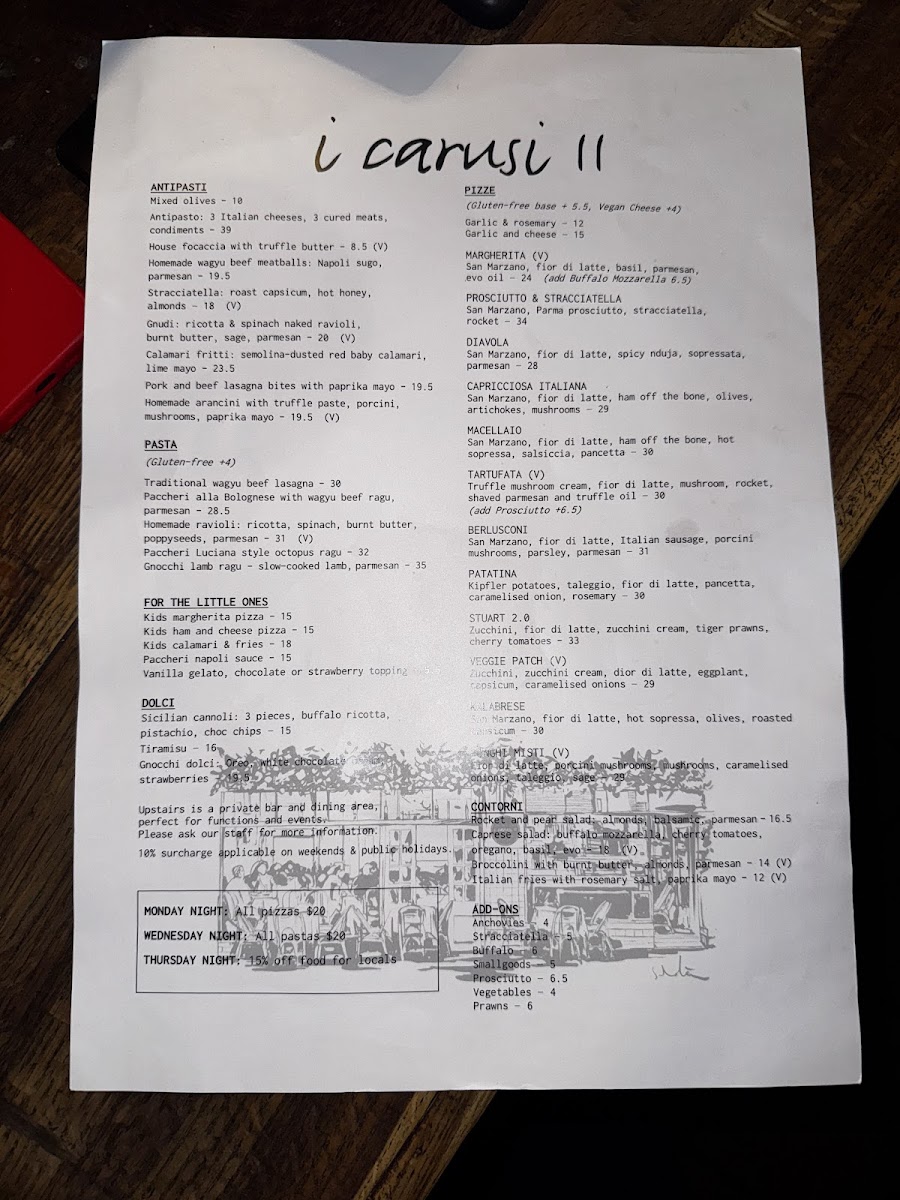 i carusi II
ANTIPASTI
Mixed olives - 10
Antipasto: 3 Italian cheeses, 3 cured meats,
condiments - 39
House focaccia with truffle butter - 8.5 (V)
Homemade wagyu beef meatballs: Napoli sugo,
parmesan - 19.5
Stracciatella: roast capsicum, hot honey,
almonds - 18 (V)
Gnudi: ricotta & spinach naked ravioli,
burnt butter, sage, parmesan - 20 (V)
Calamari fritti: semolina-dusted red baby calamari,
lime mayo - 23.5
Pork and beef lasagna bites with paprika mayo - 19.5
Homemade arancini with truffle paste, porcini,
mushrooms, paprika mayo - 19.5 (V)
PASTA
(Gluten-free +4)
Traditional wagyu beef lasagna - 30
Paccheri alla Bolognese with wagyu beef ragu,
parmesan - 28.5
Homemade ravioli: ricotta, spinach, burnt butter,
poppyseeds, parmesan - 31 (V)
Paccheri Luciana style octopus ragu - 32
Gnocchi lamb ragu - slow-cooked lamb, parmesan - 35
FOR THE LITTLE ONES
Kids margherita pizza - 15
Kids ham and cheese pizza - 15
Kids calamari & fries - 18
Paccheri napoli sauce - 15
Vanilla gelato, chocolate or strawberry topping
DOLCI
Sicilian cannoli: 3 pieces, buffalo ricotta,
pistachio, choc chips - 15
Tiramisu - 16
Gnocchi dolci: Oreo, white chocolate
strawberries - 19.5
Upstairs is a private bar and dining area,
perfect for functions and events.
Please ask our staff for more information.
10% surcharge applicable on weekends & public holidays.
MONDAY NIGHT: All pizzas $20
WEDNESDAY NIGHT: All pastas $20
THURSDAY NIGHT: 15% off food for locals
PIZZE
(Gluten-free base + 5.5, Vegan Cheese +4)
Garlic & rosemary - 12
Garlic and cheese - 15
MARGHERITA (V)
San Marzano, fior di latte, basil, parmesan,
evo oil - 24 (add Buffalo Mozzarella 6.5)
PROSCIUTTO & STRACCIATELLA
San Marzano, Parma prosciutto, stracciatella,
rocket - 34
DIAVOLA
San Marzano, fior di latte, spicy nduja, sopressata,
parmesan - 28
CAPRICCIOSA ITALIANA
San Marzano, fior di latte, ham off the bone, olives,
artichokes, mushrooms - 29
MACELLAIO
San Marzano, fior di latte, ham off the bone, hot
sopressa, salsiccia, pancetta - 30
TARTUFATA (V)
Truffle mushroom cream, fior di latte, mushroom, rocket,
shaved parmesan and truffle oil - 30
(add Prosciutto +6.5)
BERLUSCONI
San Marzano, fior di latte, Italian sausage, porcini
mushrooms, parsley, parmesan - 31
PATATINA
Kipfler potatoes, taleggio, fior di latte, pancetta,
caramelised onion, rosemary - 30
STUART 2.0
Zucchini, fior di latte, zucchini cream, tiger prawns,
cherry tomatoes - 33
VEGGIE PATCH (V)
Zucchini, zucchini cream, dior di latte, eggplant,
capsicum, caramelised onions - 29
KALABRESE
San Marzano, fior di latte, hot sopressa, olives, roasted
capsicum - 30
FUNGHI MISTI (V)
Fior di latte, porcini mushrooms, mushrooms, caramelised
onions, taleggio, sage - 29
CONTORNI
Rocket and pear salad: almonds, balsamic, parmesan - 16.5
Caprese salad: buffalo mozzarella, cherry tomatoes,
oregano, basil, evo - 18 (V)
Broccolini with burnt butter, almonds, parmesan - 14 (V)
Italian fries with rosemary salt, paprika mayo - 12 (V)
ADD-ONS
Anchovies - 4
Stracciatella - 5
Buffalo - 6
Smallgoods - 5
Prosciutto - 6.5
Vegetables - 4
Prawns - 6